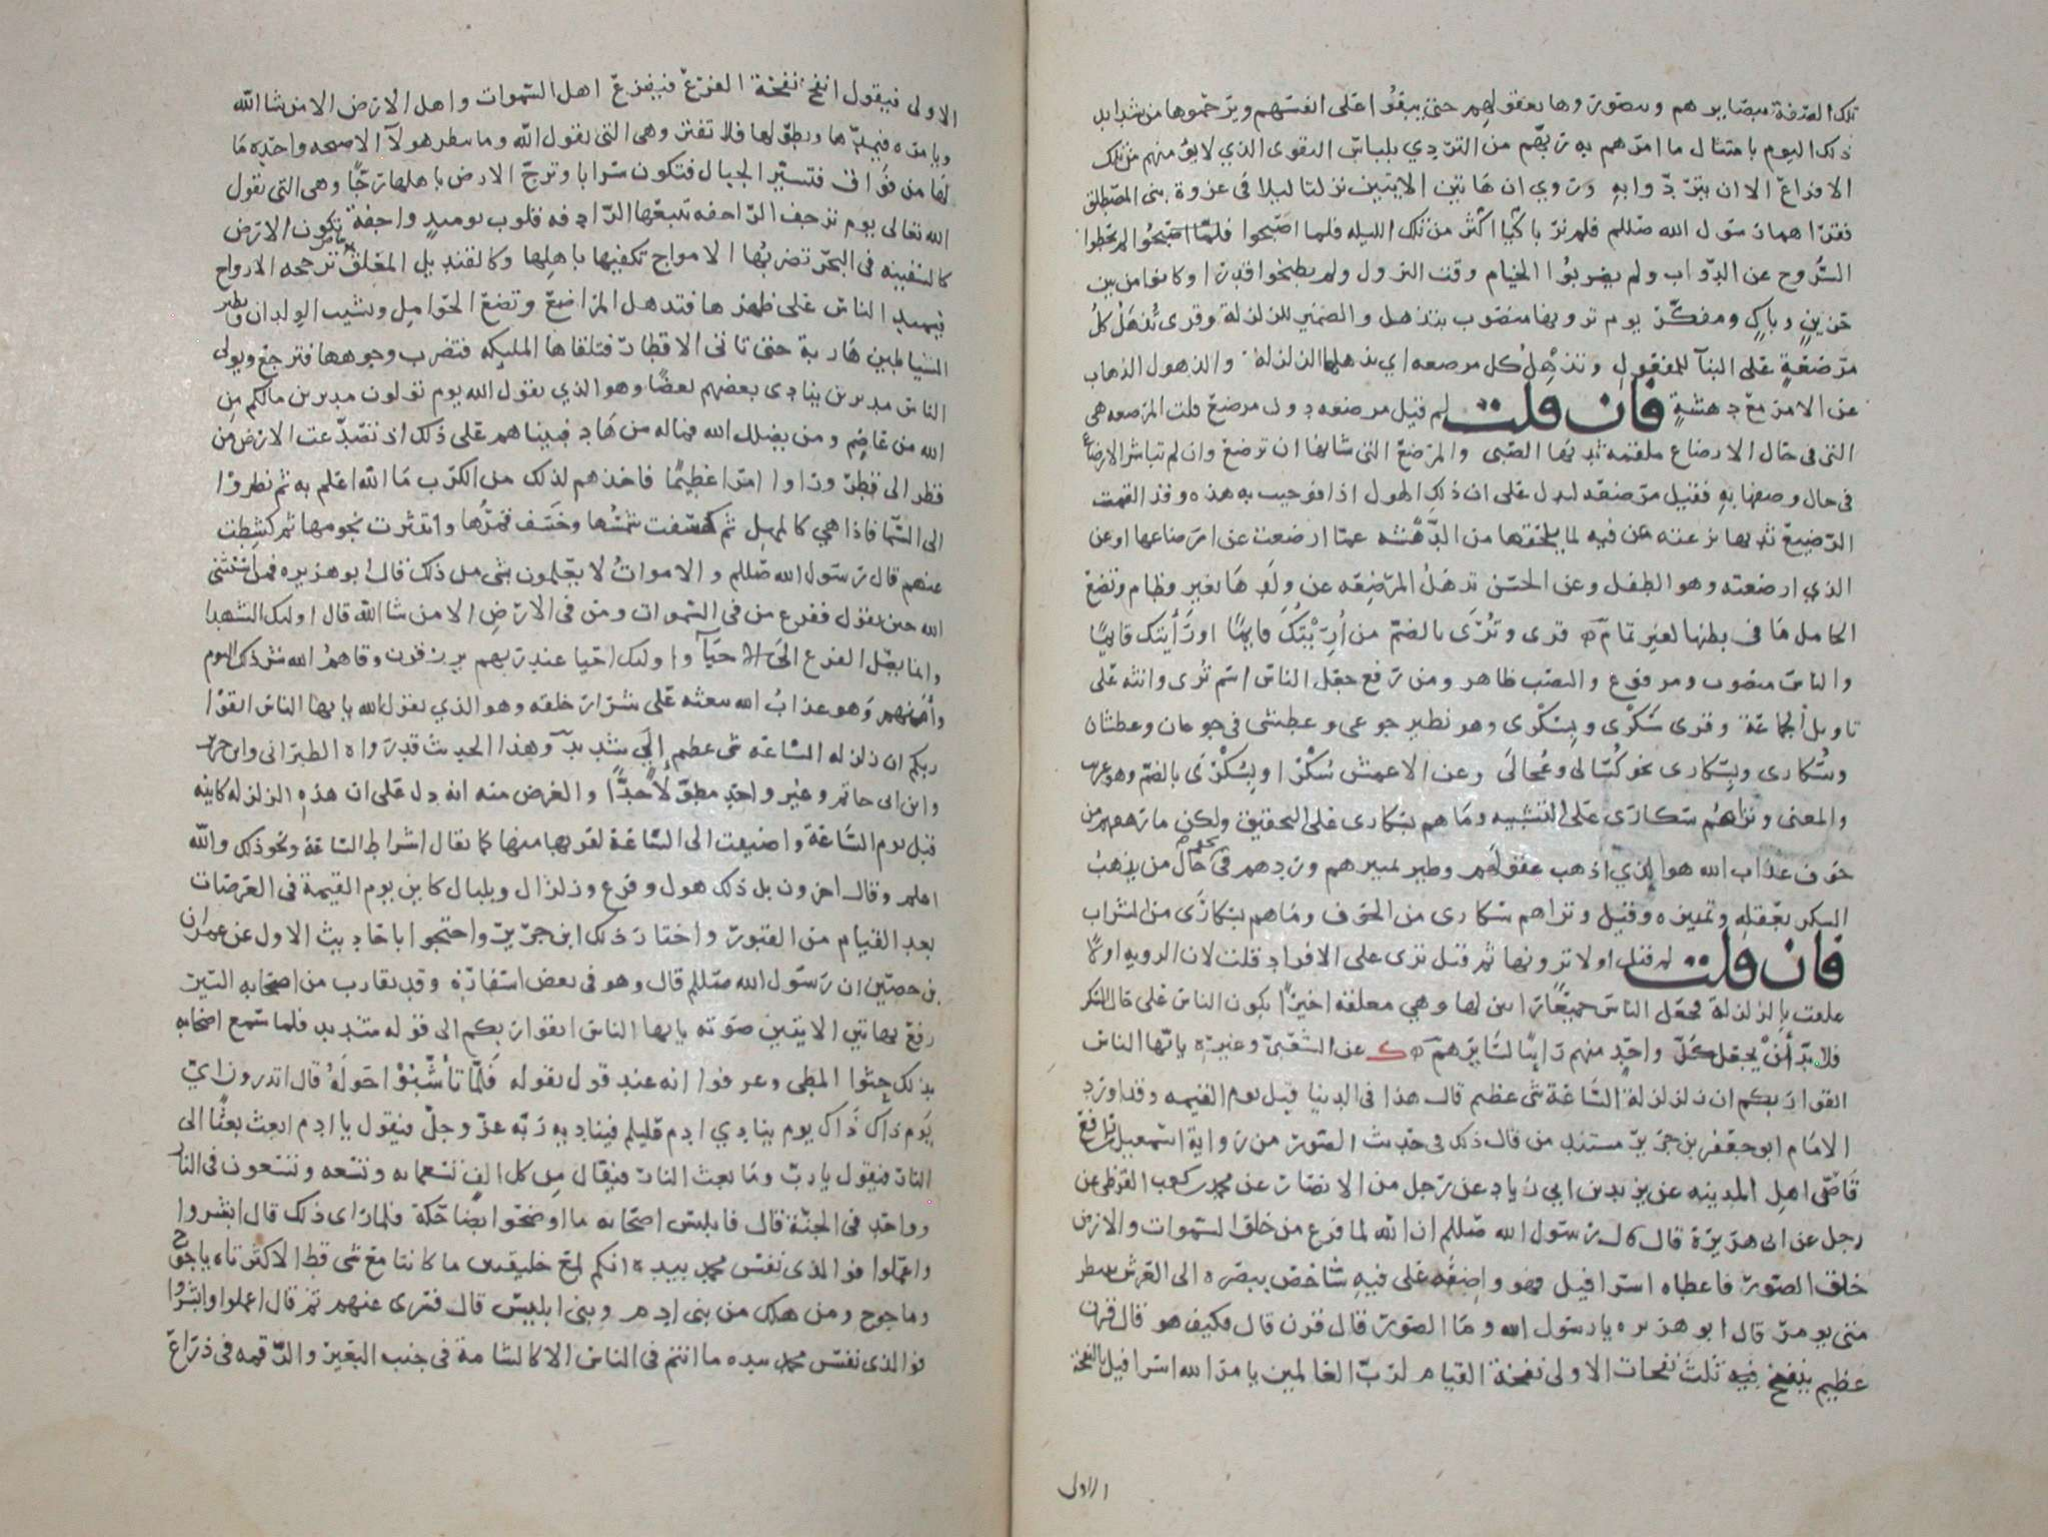 تلك الصفة ببصايرهم ويتصوروها بعقولهم حتى يبقوا على انفسهم ويرحموها من شدايد
ذلك اليوم بامتثال ما امرهم به ربهم من التردي بلباس التقوى الذي لا يؤمنهم من تلك
الافزاع الا ان يتردوا به وروي ان هاتين الايتين نزلتا ليلا فى غزوة بنى المصطلق
فقراهما رسول الله صللم فلم نر باكيا اكثر من تلك الليله فلما اصبحوا لم يحطوا
السروج عن الدواب ولم يضربوا الخيام وقت النزول ولم يطبخوا قدرا وكانوا من بين
حزين وباكٍ ومفكر يوم ترونها منصوب بتذهل والضمير للزلزلة وقرى تُذهَلُ كلُ
مرضعةٍ على البنآ للمفعول وتُذهِلُ كل مرضعه اي تذهلها الزلزلة والذهول الذهاب
عن الامر مع دهشةٍ فان قلت لم قيل مرضعه دون مرضع قلت المرضعه هى
التى فى حال الارضاع ملقمه ثديها الصبى والمرضع التى شانها ان ترضع وان لم تباشر الارضاع
فى حال وصفها به فقيل مرضعه ليدل على ان ذلك الهول اذا فوجيت به هذه وقد القمت
الرضيع ثديها نزعته عن فيه لما يلحقها من الدهشه عما ارضعت عن ارضاعها او عن
الذي ارضعته وهو الطفل وعن الحسن تذهل المرضعه عن ولدها لغير فطام وتضع
الحامل ما فى بطنها لغير تمام قرى وتُرَى بالضم من أُرِيْتُكَ قايمًا او رَأَيتك قايمًا
والناس منصوب ومرفوع والنصب ظاهر ومن رفع جعل الناس اسم تُرى وانثه على
تاويل الجماعة وقرى سَكْرى وبسَكْرى وهو نظير جوعى وعطشى فى جوعان وعطشان
وسُكارى وبسُكارى نحو كُسالى وعُجالى وعن الاعمش سُكْرَى وبسُكْرَى بالضم وهو غريب
والمعنى وتراهم سكارى على التشبيه وما هم بسكارى على التحقيق ولكن ما رهقهم من
خوف عذاب الله هو الذي اذهب عقولهم وطير تمييزهم وردهم فى حال من يذهب
السكر بعقله وتمييزه وقيل وتراهم سكارى من الخوف وما هم بسكارى من الشراب
فان قلت لم قيل اولا ترونها ثم قيل ترى على الافراد قلت لان الرويه اولا
علقت بالزلزلة فجعل الناس جميعًا رايين لها وهي معلقه اخيرًا بكون الناس على حال السكر
فلا بد أنْ يجعل كل واحدٍ منهم رايًا لسايرهم ك عن الشعبي وغيره ياايها الناس
اتقوا ربكم ان زلزلة الساعة شى عظيم قال هذا فى الدنيا قبل يوم القيمه وقد اورد
الامام ابو جعفر بن جرير مستند من قال ذلك فى حديث الصور من رواية اسمعيل بن رافع
قاضى اهل المدينه عن يزيد بن ابي زياد عن رجل من الانصار عن محمد بن كعب القرظى عن
رجل عن ابى هريرة قال قال رسول الله صللم ان الله لما فرغ من خلق السموات والارض
خلق الصور فاعطاه اسرافيل فهو واضعه على فيه شاخص ببصره الى العرش ينتظر
متى يومر قال ابو هريره يا رسول الله وما الصور قال قرن قال فكيف هو قال قرن
عظيم ينفخ فيه ثلث نفخات الاولى نفخة القيام لرب العالمين يامر الله اسرافيل بالنفخة
الاولى
الاولى فيقول انفخ نفخة الفزع فيفزع اهل السموات واهل الارض الا من شا الله
ويامره فيمدها ويطولها فلا تفتر وهى التى يقول الله وما ينظر هولآ الا صيحه واحده ما
لها من فواق فتسير الجبال فتكون سرابا وترج الارض باهلها رجًا وهى التى يقول
الله تعالى يوم ترجف الراجفه تتبعها الرادفه قلوب يوميذٍ واجفة فتكون الارض
كالسفينه فى البحر تضربها الامواج تكفيها باهلها وكالقنديل المعلق ترجحه الارواح
فيميد الناس على ظهرها فتذهل المراضع وتضع الحوامل وتشيب الولدان وتطير
الشياطين هاربة حتى تاتى الاقطار فتلقاها المليكه فتضرب وجوهها فترجع ويولى
الناس مدبرين ينادى بعضهم بعضًا وهو الذي يقول الله يوم تولون مدبرين مالكم من
الله من عاصم ومن يضلل الله فماله من هاد فبيناهم على ذلك اذ تصدعت الارض من
قطر الى قطر وراوا امرا عظيمًا فاخذهم لذلك من الكرب ما الله اعلم به ثم نظروا
الى السما فاذا هي كالمهل ثم كسفت شمسها وخسف قمرها وانتثرت نجومها ثم كشطت
عنهم قال رسول الله صللم والاموات لا يعلمون بشى من ذلك قال ابو هريره فمن استثنى
الله حين يقول ففزع من فى السموات ومن فى الارض الا من شا الله قال اوليك الشهدا
وانما يصل الفزع الى الاحيآ واوليك احيا عند ربهم يرزقون وقاهم الله شر ذلك اليوم
وأمنهم وهو عذاب الله يبعثه على شرار خلقه وهو الذي يقول الله ياايها الناس اتقوا
ربكم ان زلزله الساعه شى عظيم إلَى شديد وهذا الحديث قد رواه الطبرانى وابن جرير
وابن ابى حاتم وغير واحدٍ مطولًا جدًا والغرض منه انه دل على ان هذه الزلزله كاينه
قبل يوم الساعة واضيفت الى الساعة لقربها منها كما يقال اشراط الساعة ونحو ذلك والله
اعلم وقال اخرون بل ذلك هول وفزع وزلزال وبلبال كاين يوم القيمة فى العرصات
بعد القيام من القبور واختار ذلك ابن جرير واحتجوا باحاديث الاول عن عمران
بن حصين ان رسول الله صللم قال وهو فى بعض اسفاره وقد تقارب من اصحابه السير
رفع بهاتين الايتين صوته ياايها الناس اتقوا ربكم الى قوله شديد فلما سمع اصحابه
بذلك حثوا المطى وعرفوا انه عند قول يقوله فلما تأشبوا حوله قال اتدرون ايّ
يَوم ذاك ذَاك يوم ينادي ادم فيناديه ربه عز وجل فيقول يا ادم ابعث بعثًا الى
النار فيقول يا رب وما بعث النار فيقال من كل الفٍ تسعمايه وتسعه وتسعون فى النار
وواحد فى الجنة قال فابلس اصحابه ما اوضحوا بضاحكة فلما راى ذلك قال ابشروا
واعملوا فوالذى نفس محمد بيده انكم لمع خليقتين ما كانتا مع شى قط الا كثرتاه ياجوج
وماجوج ومن هلك من بنى ادم وبنى ابليس قال فسرى عنهم ثم قال اعملوا وابشروا
فوالذى نفس محمد بيده ما انتم فى الناس الا كالشامة فى جنب البعير والرقمه فى ذراع